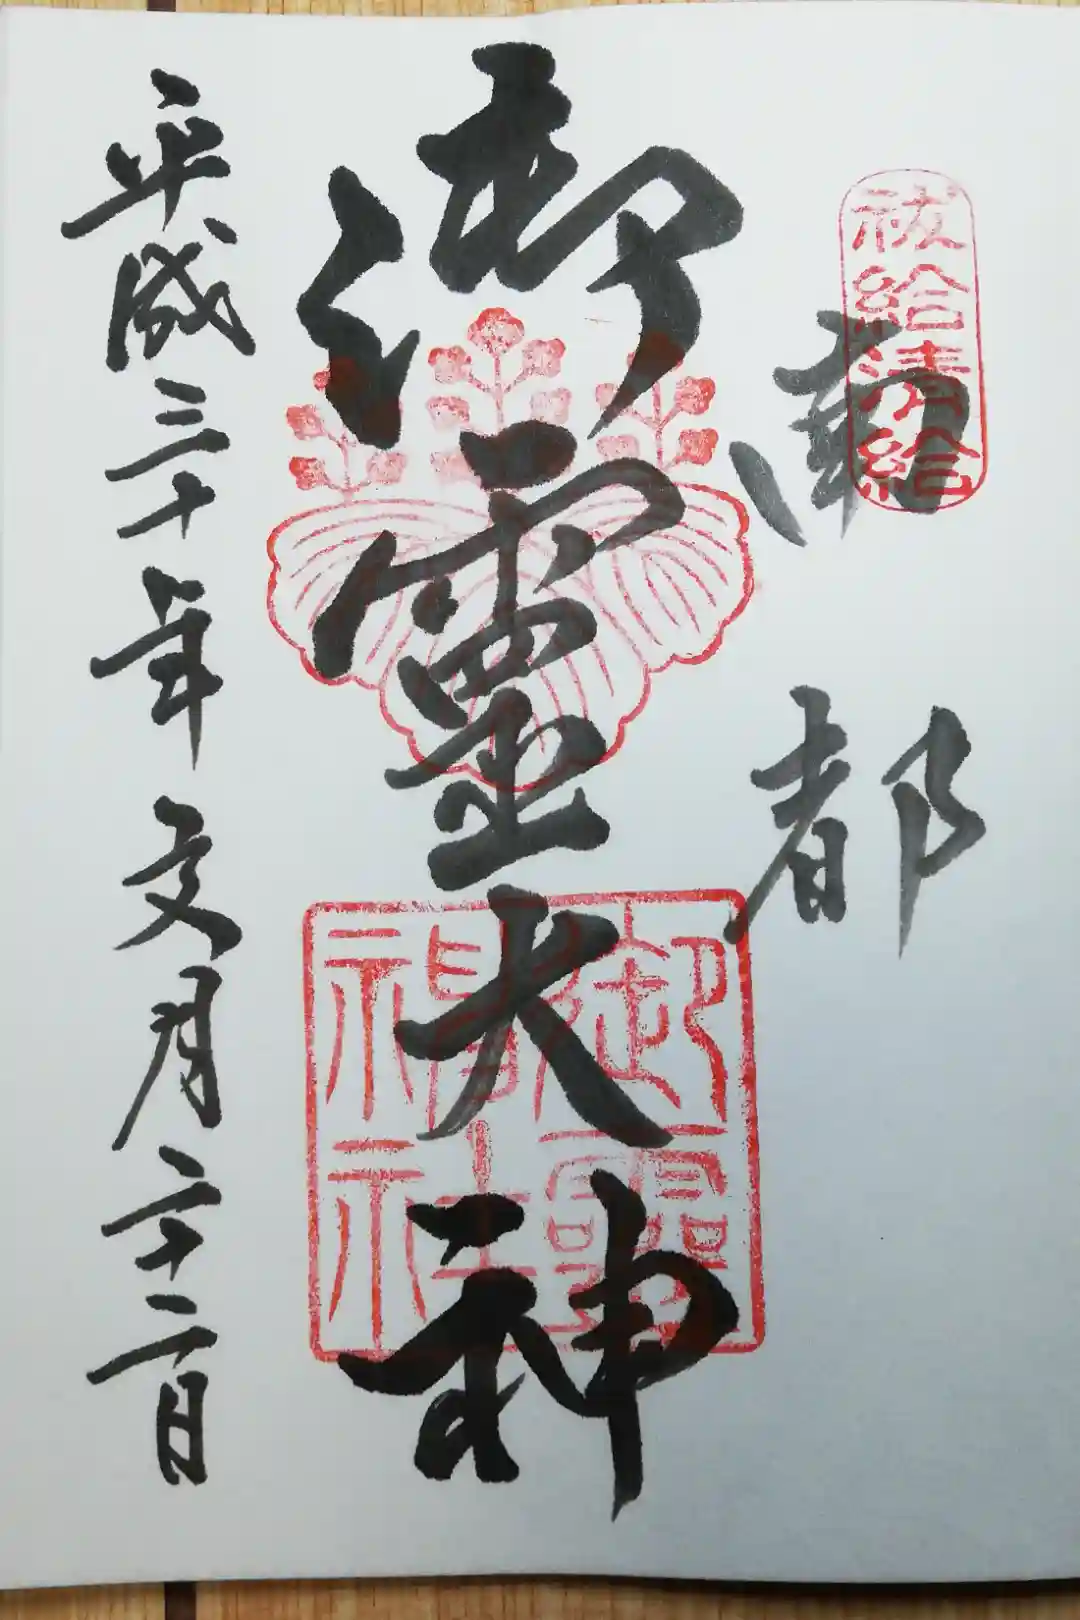 祓給清給
南都
御靈大神
御靈神社
平成三十年文月二十二日